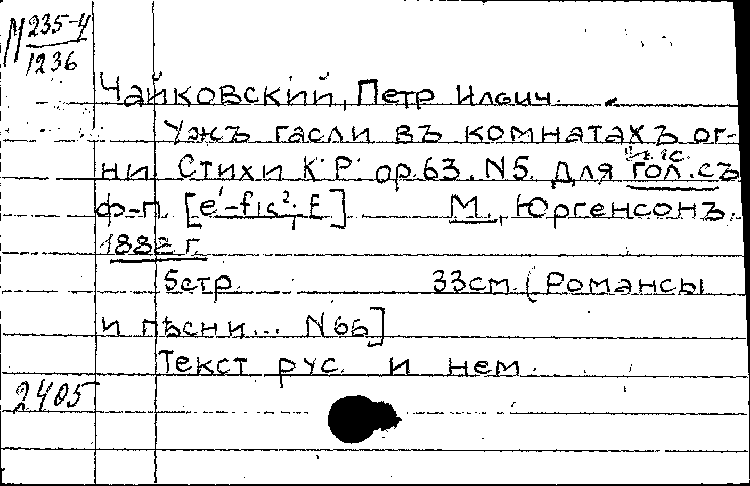 М 235-4
1236
Чайковский, Петр Ильич.
Ужъ гасли въ комнатахъ ог-
ни. Стихи К. Р. ор. 63. N 5. Для гол. съ
ф-п. [e¹-fis²; E] М., Юргенсонъ,
188 г.
5 стр. 33 см. [Романсы
и пѣсни... N 66]
Текст рус. и нем.
2405